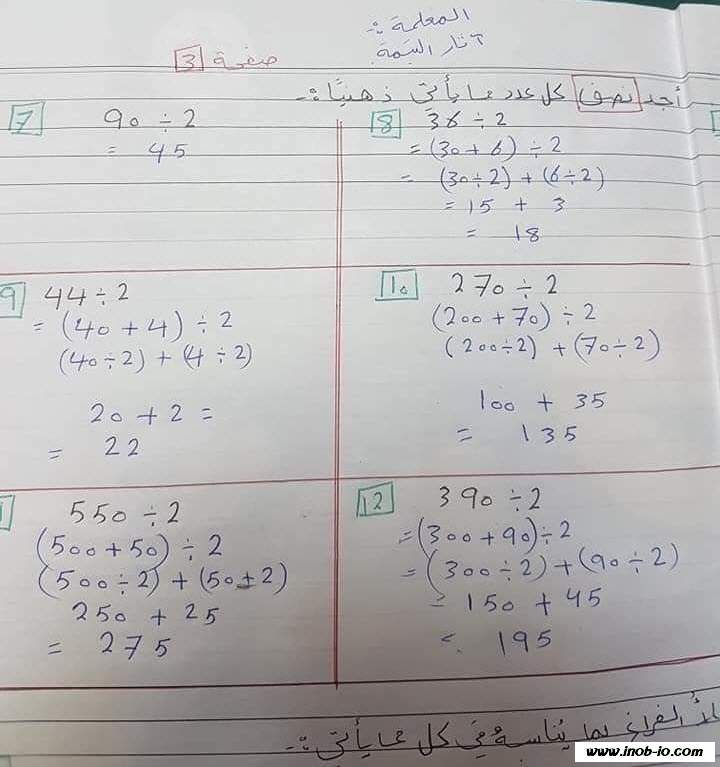 المعلمة :-
آثار البسمة
صفحة 3
أجد نصف كل عدد مما يأتي ذهنيًا :-
7 90 ÷ 2
= 45
8 36 ÷ 2
= (30 + 6) ÷ 2
= (30 ÷ 2) + (6 ÷ 2)
= 15 + 3
= 18
9 44 ÷ 2
= (40 + 4) ÷ 2
(40 ÷ 2) + (4 ÷ 2)
20 + 2 =
= 22
10 270 ÷ 2
(200 + 70) ÷ 2
(200 ÷ 2) + (70 ÷ 2)
100 + 35
= 135
550 ÷ 2
(500 + 50) ÷ 2
(500 ÷ 2) + (50 ÷ 2)
250 + 25
= 275
12 390 ÷ 2
= (300 + 90) ÷ 2
= (300 ÷ 2) + (90 ÷ 2)
= 150 + 45
= 195
الفراغ بما يناسبه في كل مما يأتي :-
www.inob-io.com